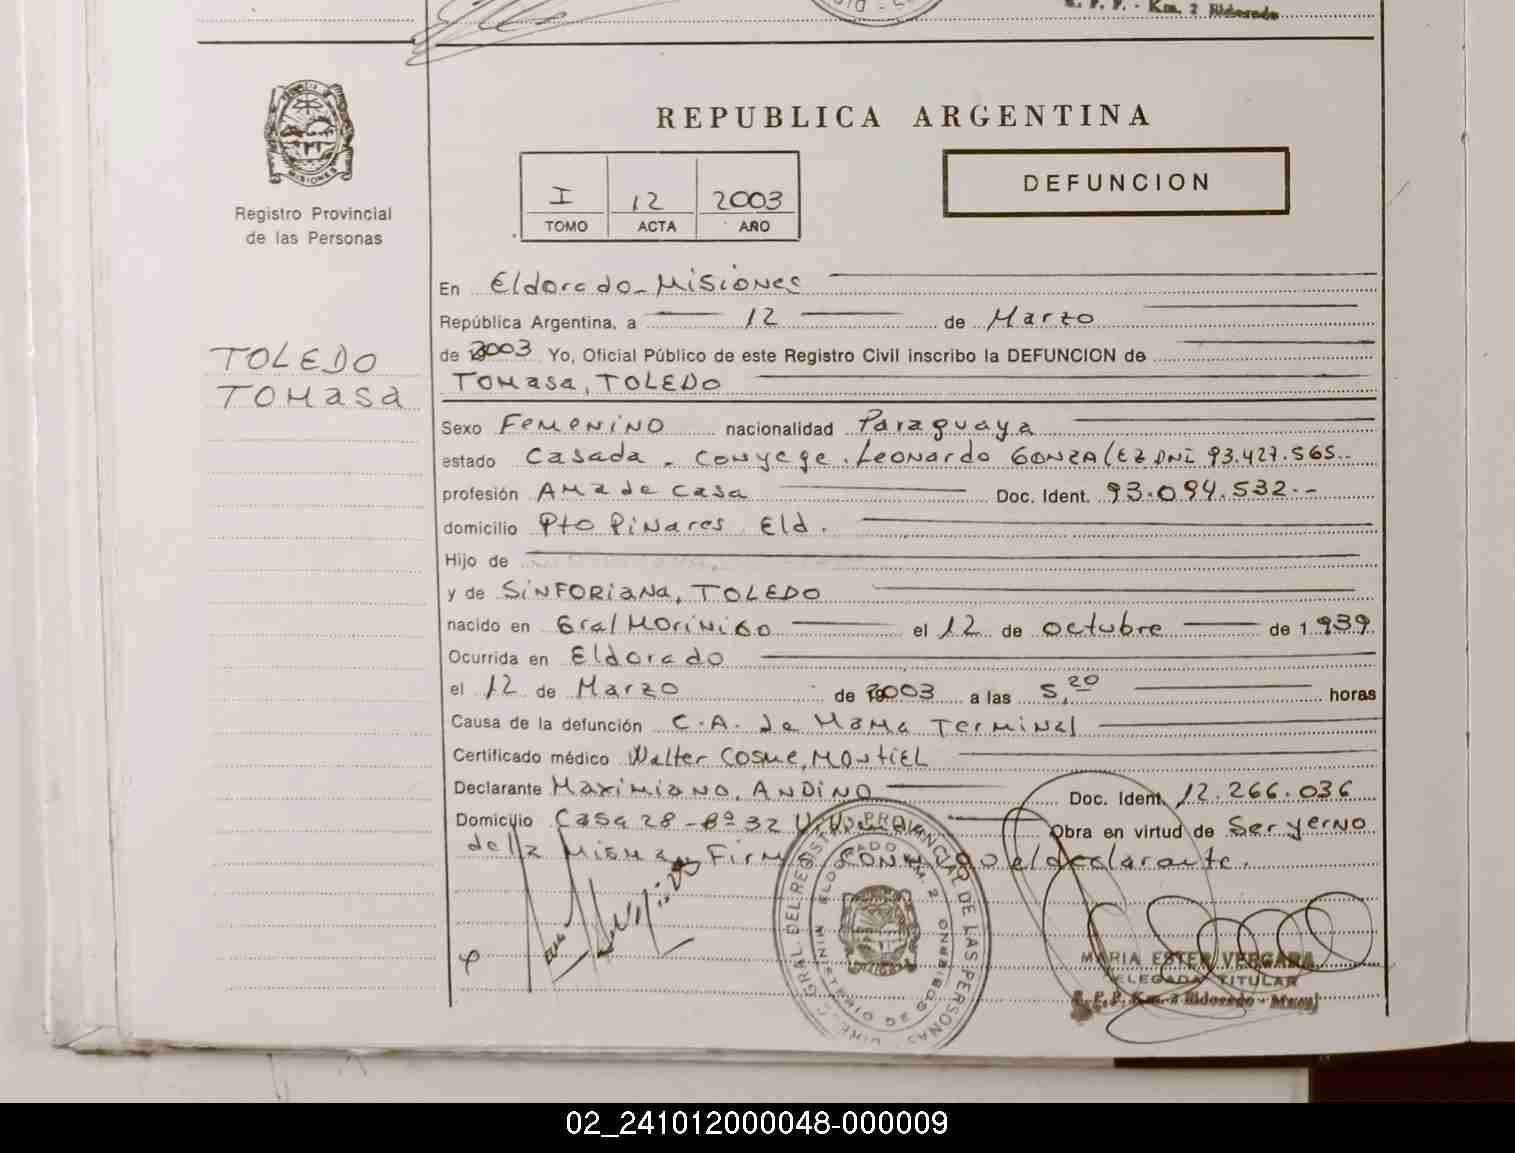 R. P. P. - Km. 2 Eldorado
REPUBLICA ARGENTINA
MISIONES
I 12 2003
TOMO ACTA AÑO
DEFUNCION
Registro Provincial
de las Personas
TOLEDO
TOMasa
En Eldorado_Misiones
República Argentina, a 12 de Marzo
de 2003 Yo, Oficial Público de este Registro Civil inscribo la DEFUNCION de
TOMasa, TOLEDO
Sexo Femenino nacionalidad Paraguaya
estado Casada - Conyege. Leonardo GONZALEZ DNI 93.427.565..
profesión Ama de casa Doc. Ident. 93.094.532.-
domicilio Pto Pinares Eld.
Hijo de
y de SINFORIANA, TOLEDO
nacido en Gral Morinigo el 12 de octubre de 1.939
Ocurrida en Eldorado
el 12 de Marzo de 2003 a las 5,20 horas
Causa de la defunción C.A. de Mama Terminal
Certificado médico Walter Cosme, Montiel
Declarante Maximiano, ANDINO Doc. Ident. 12.266.036
Domicilio Casa 28 - Bº 32 Obra en virtud de Ser yerno
de la misma. Firma conmigo el declarante.
GRAL. DEL REGISTRO PROVINCIAL DE LAS PERSONAS
MINISTERIO DE GOBIERNO
ELDORADO KM. 2
MARIA ESTER VERGARA
DELEGADA TITULAR
R. P. P. Km. 2 Eldorado - Mnes
02_241012000048-000009